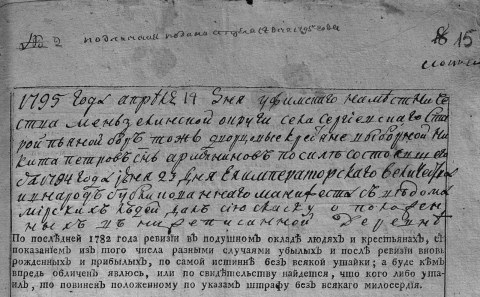 № 2 подлинная подана апреля 1795 года
15
1795 года апреля 19 дня уфимскаго наместниче
ства мензелинской округи села Сергиевскаго Ста
рой пьяной боръ тожъ дворцовые крестьяне выборной ни
кита петровъ снъ по силе состоявшегося
1794 года июня 23 дня Ея императорскаго величества
и в народъ публикованнаго манифеста с ведома
мирскихъ людей далъ сию скаску о положен
ныхъ в нижеписанной деревне
По послѣдней 1782 года ревизіи въ подушномъ окладѣ людяхъ и крестьянахъ, съ
показаніемъ изъ того числа разными случаями убылыхъ и послѣ ревизіи вновь
рожденныхъ и прибылыхъ, по самой истиннѣ безъ всякой утайки; а буде кѣмъ
впредь обличенъ явлюсь, или по свидѣтельству найдется, что кого либо ута-
илъ, то повиненъ положенному по указамъ штрафу безъ всякаго милосердія.